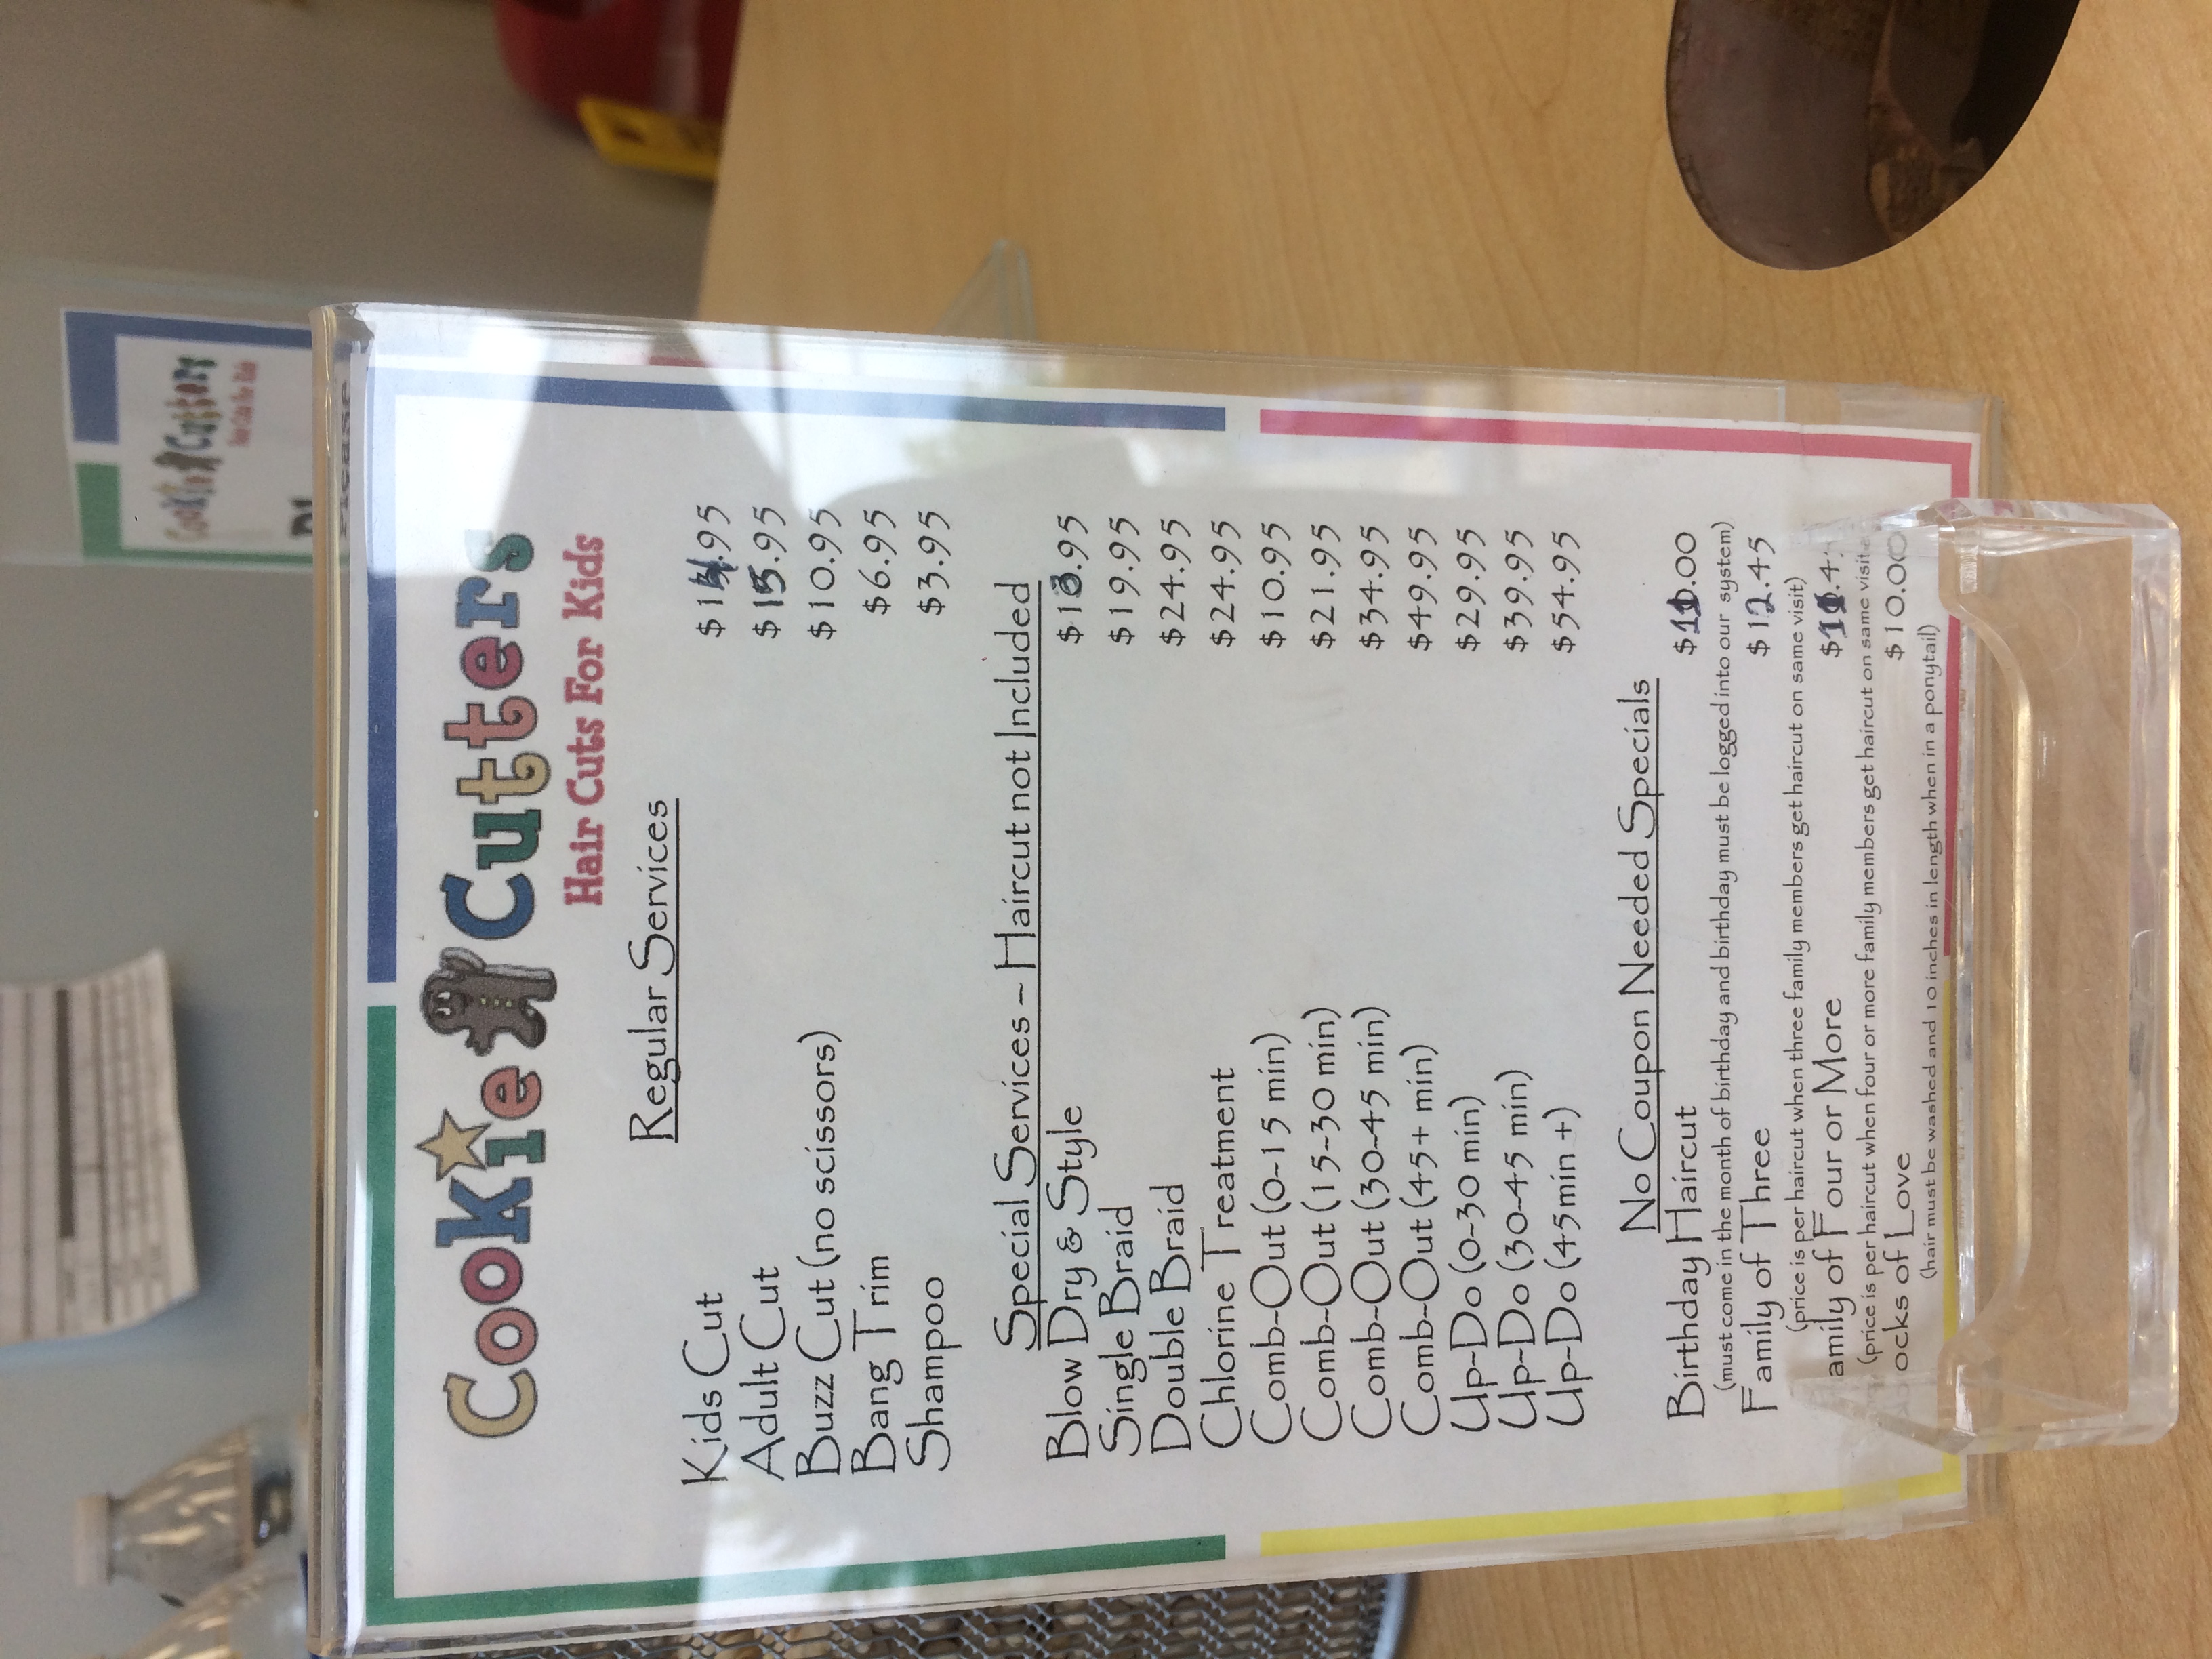 Cookie Cutters
Hair Cuts For Kids
Regular Services
Kids Cut $14.95
Adult Cut $15.95
Buzz Cut (no scissors) $10.95
Bang Trim $6.95
Shampoo $3.95
Special Services ~ Haircut not Included
Blow Dry & Style .95
Single Braid $19.95
Double Braid $24.95
Chlorine Treatment $24.95
Comb-Out (0-15 min) $10.95
Comb-Out (15-30 min) $21.95
Comb-Out (30-45 min) $34.95
Comb-Out (45+ min) $49.95
Up-Do (0-30 min) $29.95
Up-Do (30-45 min) $39.95
Up-Do (45min +) $54.95
No Coupon Needed Specials
Birthday Haircut $11.00
(must come in the month of birthday and birthday must be logged into our system)
Family of Three $12.45
(price is per haircut when three family members get haircut on same visit)
amily of Four or More
(price is per haircut when four or more family members get haircut on same visit
ocks of Love $10.00
(hair must be washed and 10 inches in length when in a ponytail)
Cookie Cutters
Hair Cuts For Kids
Please